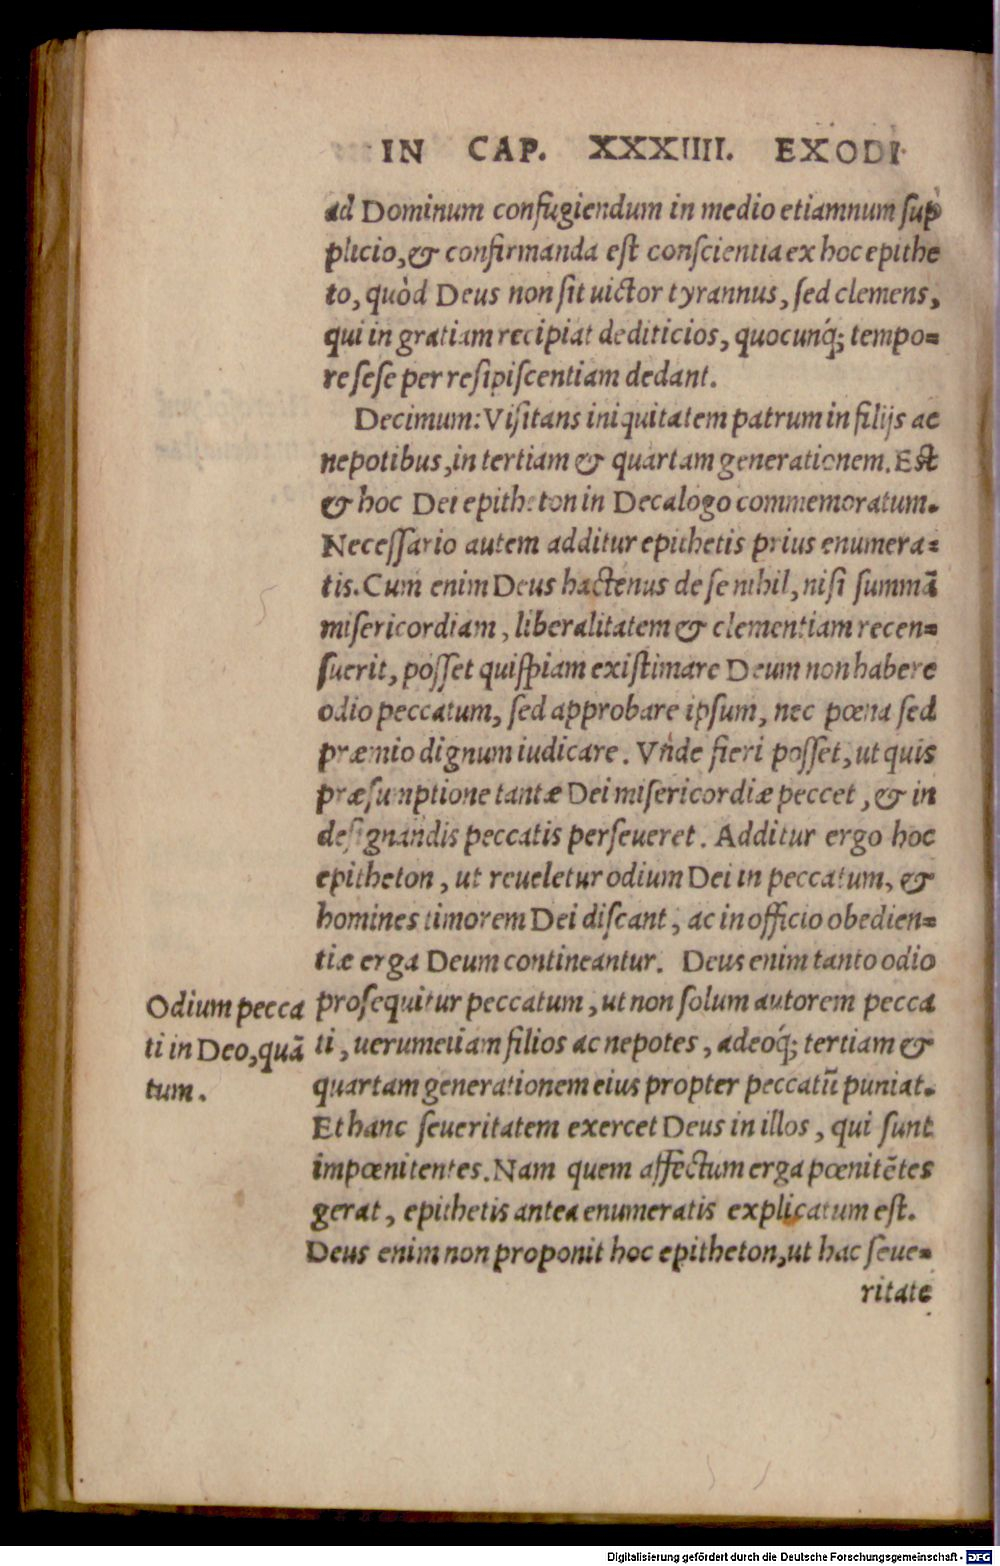 IN CAP. XXXIIII. EXODI
ad Dominum confugiendum in medio etiamnum sup
plicio, & confirmanda est conscientia ex hoc epithe
to, quòd Deus non sit uictor tyrannus, sed clemens,
qui in gratiam recipiat dediticios, quocunq́; tempo=
re sese per resipiscentiam dedant.
Decimum: Visitans iniquitatem patrum in filijs ac
nepotibus, in tertiam & quartam generationem. Est
& hoc Dei epitheton in Decalogo commemoratum.
Necessario autem additur epithetis prius enumera=
tis. Cum enim Deus hactenus de se nihil, nisi summã
misericordiam, liberalitatem & clementiam recen=
suerit, posset quispiam existimare Deum non habere
odio peccatum, sed approbare ipsum, nec pœna sed
præmio dignum iudicare. Vnde fieri posset, ut quis
præsumptione tantæ Dei misericordiæ peccet, & in
designandis peccatis perseueret. Additur ergo hoc
epitheton, ut reueletur odium Dei in peccatum, &
homines timorem Dei discant, ac in officio obedien=
tiæ erga Deum contineantur. Deus enim tanto odio
prosequitur peccatum, ut non solum autorem pecca
ti, uerumetiam filios ac nepotes, adeoq́; tertiam &
quartam generationem eius propter peccatũ puniat.
Et hanc seueritatem exercet Deus in illos, qui sunt
impœnitentes. Nam quem affectum erga pœnitẽtes
gerat, epithetis antea enumeratis explicatum est.
Deus enim non proponit hoc epitheton, ut hac seue=
ritate
Odium pecca
ti in Deo, quã
tum.
Digitalisierung gefördert durch die Deutsche Forschungsgemeinschaft - DFG